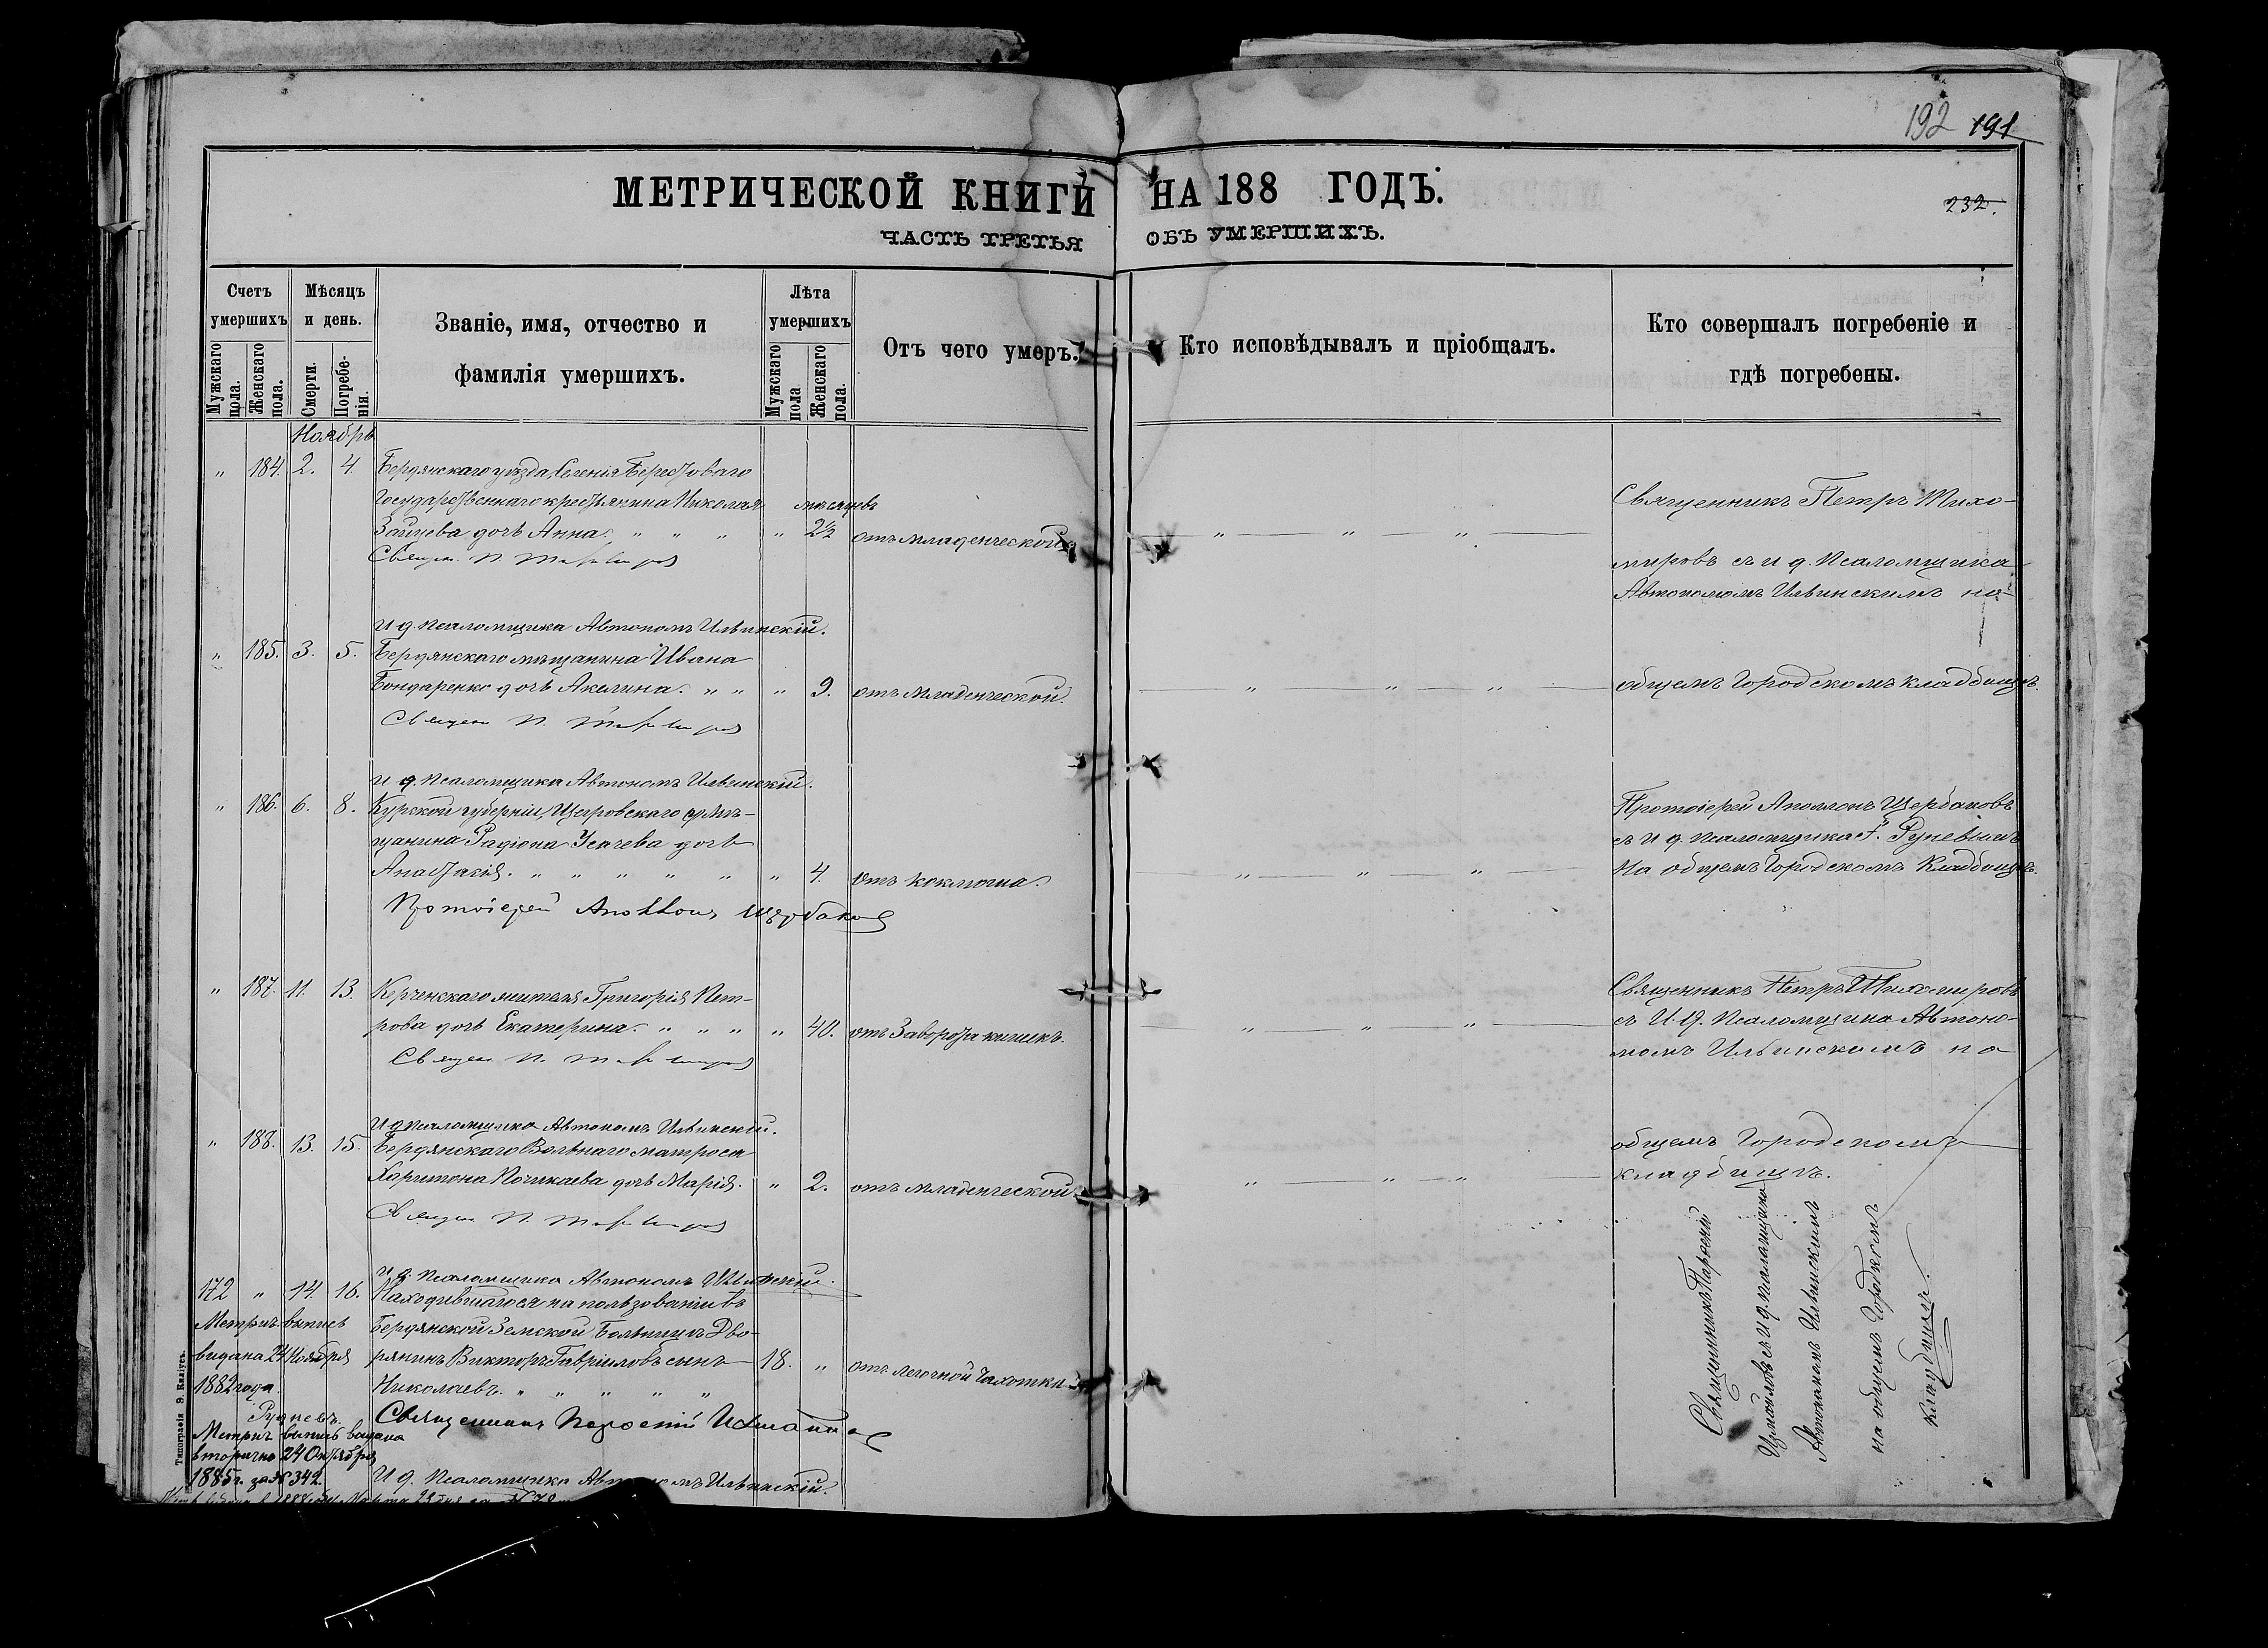 192 191
МЕТРИЧЕСКОЙ КНИГИ НА 188 ГОДЪ.
232.
ЧАСТЬ ТРЕТЬЯ ОБЪ УМЕРШИХЪ.
Счетъ умершихъ
Мужскаго пола.
Женскаго пола.
Мѣсяцъ и день.
Смерти.
Погребенія.
Званіе, имя, отчество и
фамилія умершихъ.
Лѣта умершихъ
Мужскаго пола
Женскаго пола.
Отъ чего умеръ.
Кто исповѣдывалъ и пріобщалъ.
Кто совершалъ погребеніе и
гдѣ погребены.
Ноябрь
" 184. 2. 4. Бердянскаго уѣзда, Селенія Берестоваго
Государственнаго крестьянина Николая мѣсяцевъ
Зайцева дочь Анна. " " " " 2½ отъ младенческой
Священ. П. Тихомиров
Священникъ Петръ Тихо-
мировъ съ и д. Псаломщика
Автономомъ Ильинскимъ на
общемъ Городскомъ кладбищѣ.
И д. псаломщика Автономъ Ильинскій.
" 185. 3. 5. Бердянскаго мѣщанина Ивана
Бондаренко дочь Акилина. " " " 9. отъ младенческой.
Священ П. Тихомиров
и д. псаломщика Автономъ Ильинскій.
" 186. 6. 8. Курской губерніи, Щигровскаго мѣ-
щанина Радіона Усачева дочь
Анастасія. " " " " " " 4. отъ коклюша.
Протоіерей Аполлонъ Щербаков
Протоіерей Аполлонъ Щербаковъ
съ И д. псаломщика Ѳ. Рудневымъ
На общемъ Городскомъ Кладбищѣ.
" 187. 11. 13. Керченскаго жителя Григорія Пет-
рова дочь Екатерина. " " " " 40. отъ Заворота кишекъ.
Священ П. Тихомиров
Священникъ Петръ Тихомировъ
съ И. д. Псаломщика Автоно-
момъ Ильинскимъ на
общемъ Городскомъ
кладбищѣ.
И д псаломщика Автономъ Ильинскій.
" 188. 13. 15. Бердянскаго Вольнаго матроса
Харитона дочь Марія. " 2. отъ младенческой.
Священ П. Тихомиров
и д. псаломщика Автономъ Ильинскій.
172 " 14. 16. Находившагося на пользованіи въ
Бердянской Земской Больницѣ Дво-
рянинъ Викторъ Гавріиловъ сынъ 18. " отъ легочной Чахотки
Николаевъ. " " " " "
Священникъ
И д. Псаломщика Автономъ Ильинскій.
Метрич. выпись
выдана 24 Ноября
1882 года.
Рудневъ.
Метрич выпись выдана
вторично 24 Октября
1885 г. за № 342.
Священникъ
съ И д. псаломщика
Автономомъ Ильинскимъ
на общемъ Городскомъ
кладбищѣ.
Типографія Э. Килiусъ.